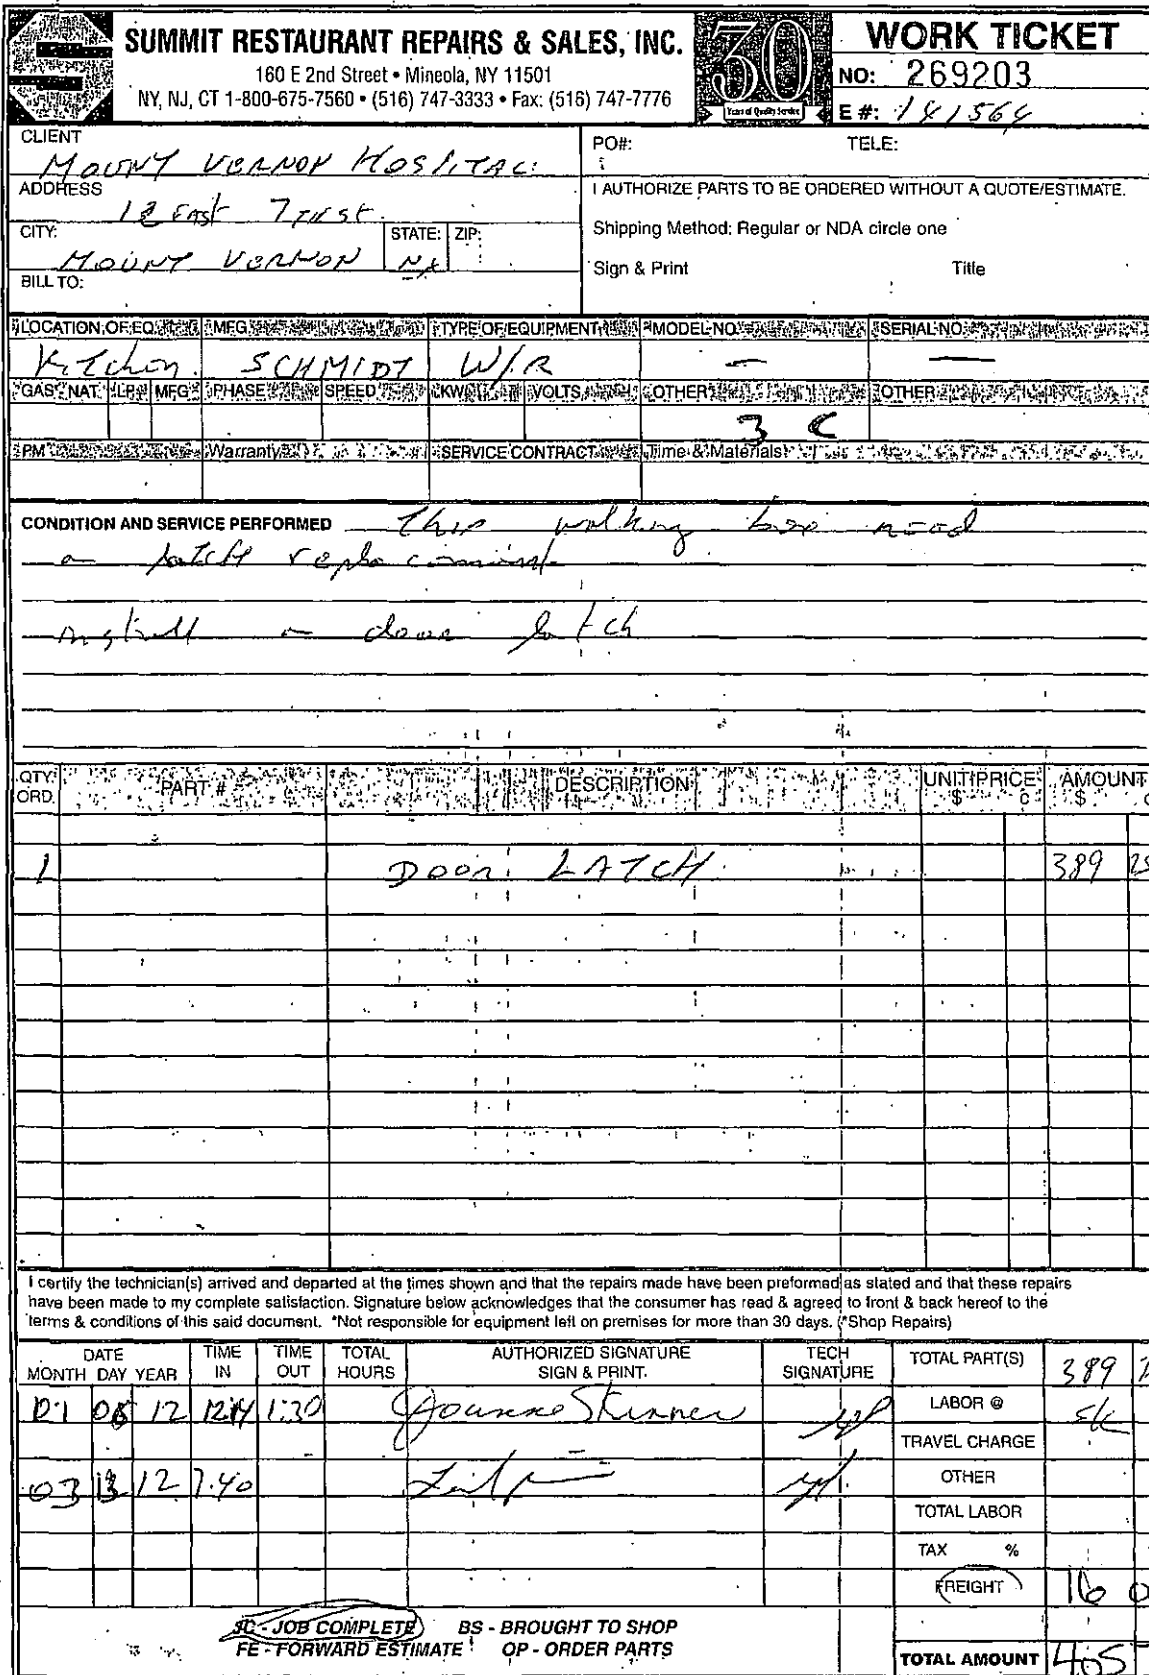 SUMMIT RESTAURANT REPAIRS & SALES, INC.
160 E 2nd Street • Mineola, NY 11501
NY, NJ, CT 1-800-675-7560 • (516) 747-3333 • Fax: (516) 747-7776
30
Years of Quality Service
WORK TICKET
NO: 269203
E #: 141564
CLIENT
MOUNT VERNON HOSPITAL
PO#: TELE:
ADDRESS
12 East 7TH ST.
I AUTHORIZE PARTS TO BE ORDERED WITHOUT A QUOTE/ESTIMATE.
CITY: STATE: ZIP:
MOUNT VERNON NY
Shipping Method: Regular or NDA circle one
BILL TO:
Sign & Print Title
LOCATION OF EQ. MFG TYPE OF EQUIPMENT MODEL NO. SERIAL NO.
Kitchen SCHMIDT W/R — —
GAS NAT. LP MFG PHASE SPEED KW VOLTS OTHER OTHER
3 C
PM Warranty SERVICE CONTRACT Time & Materials
CONDITION AND SERVICE PERFORMED This walking box need
a latch replacement
install a door latch
QTY. ORD. PART # DESCRIPTION UNIT PRICE $ c AMOUNT $ c
1 DOOR LATCH 389 25
I certify the technician(s) arrived and departed at the times shown and that the repairs made have been preformed as stated and that these repairs
have been made to my complete satisfaction. Signature below acknowledges that the consumer has read & agreed to front & back hereof to the
terms & conditions of this said document. *Not responsible for equipment left on premises for more than 30 days. (*Shop Repairs)
DATE MONTH DAY YEAR TIME IN TIME OUT TOTAL HOURS AUTHORIZED SIGNATURE SIGN & PRINT. TECH SIGNATURE
TOTAL PART(S) 389
01 12 1:30 Joanne Skinner
LABOR @
TRAVEL CHARGE
03 13 12 7:40
OTHER
TOTAL LABOR
TAX %
FREIGHT 16 0
JC - JOB COMPLETE BS - BROUGHT TO SHOP
FE - FORWARD ESTIMATE OP - ORDER PARTS
TOTAL AMOUNT 405